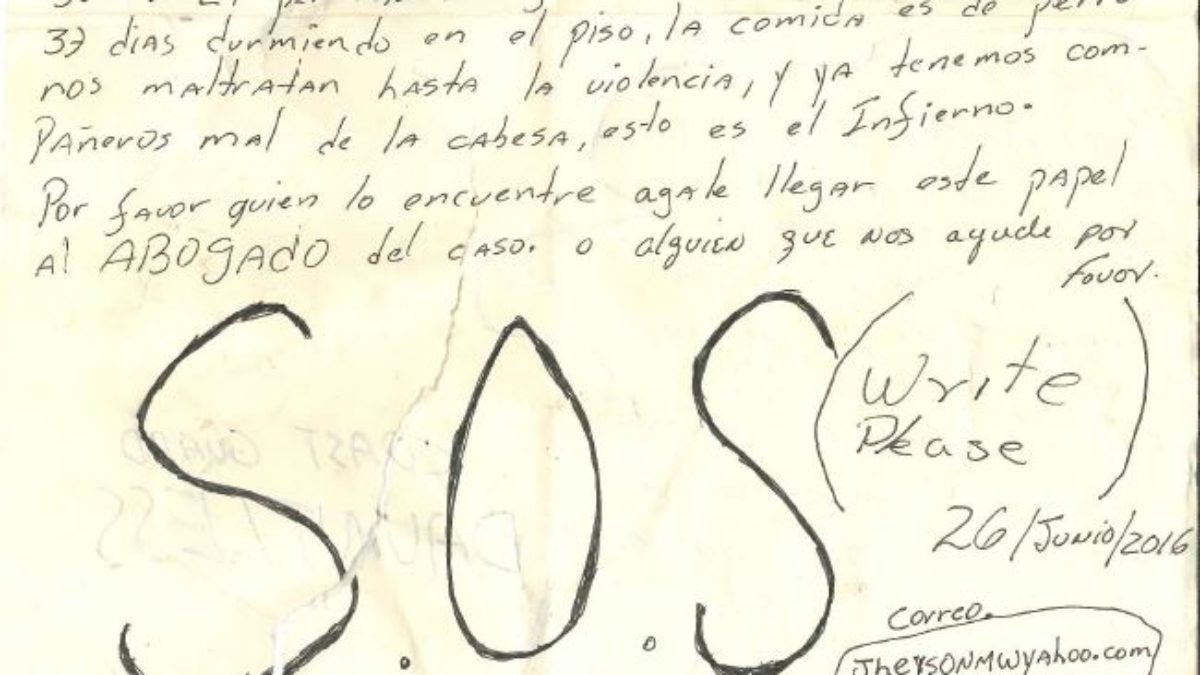 37 dias durmiendo en el piso, la comida es de perro
nos maltratan hasta la violencia, y ya tenemos com-
pañeros mal de la cabesa, esto es el Infierno.
Por favor quien lo encuentre agale llegar este papel
al ABOGADO del caso. o alguien que nos ayude por
favor.
S.O.S
(Write
Please)
26/Junio/2016
COAST GUARD
DAUNTLESS
correo.
JheysonMWyahoo.com